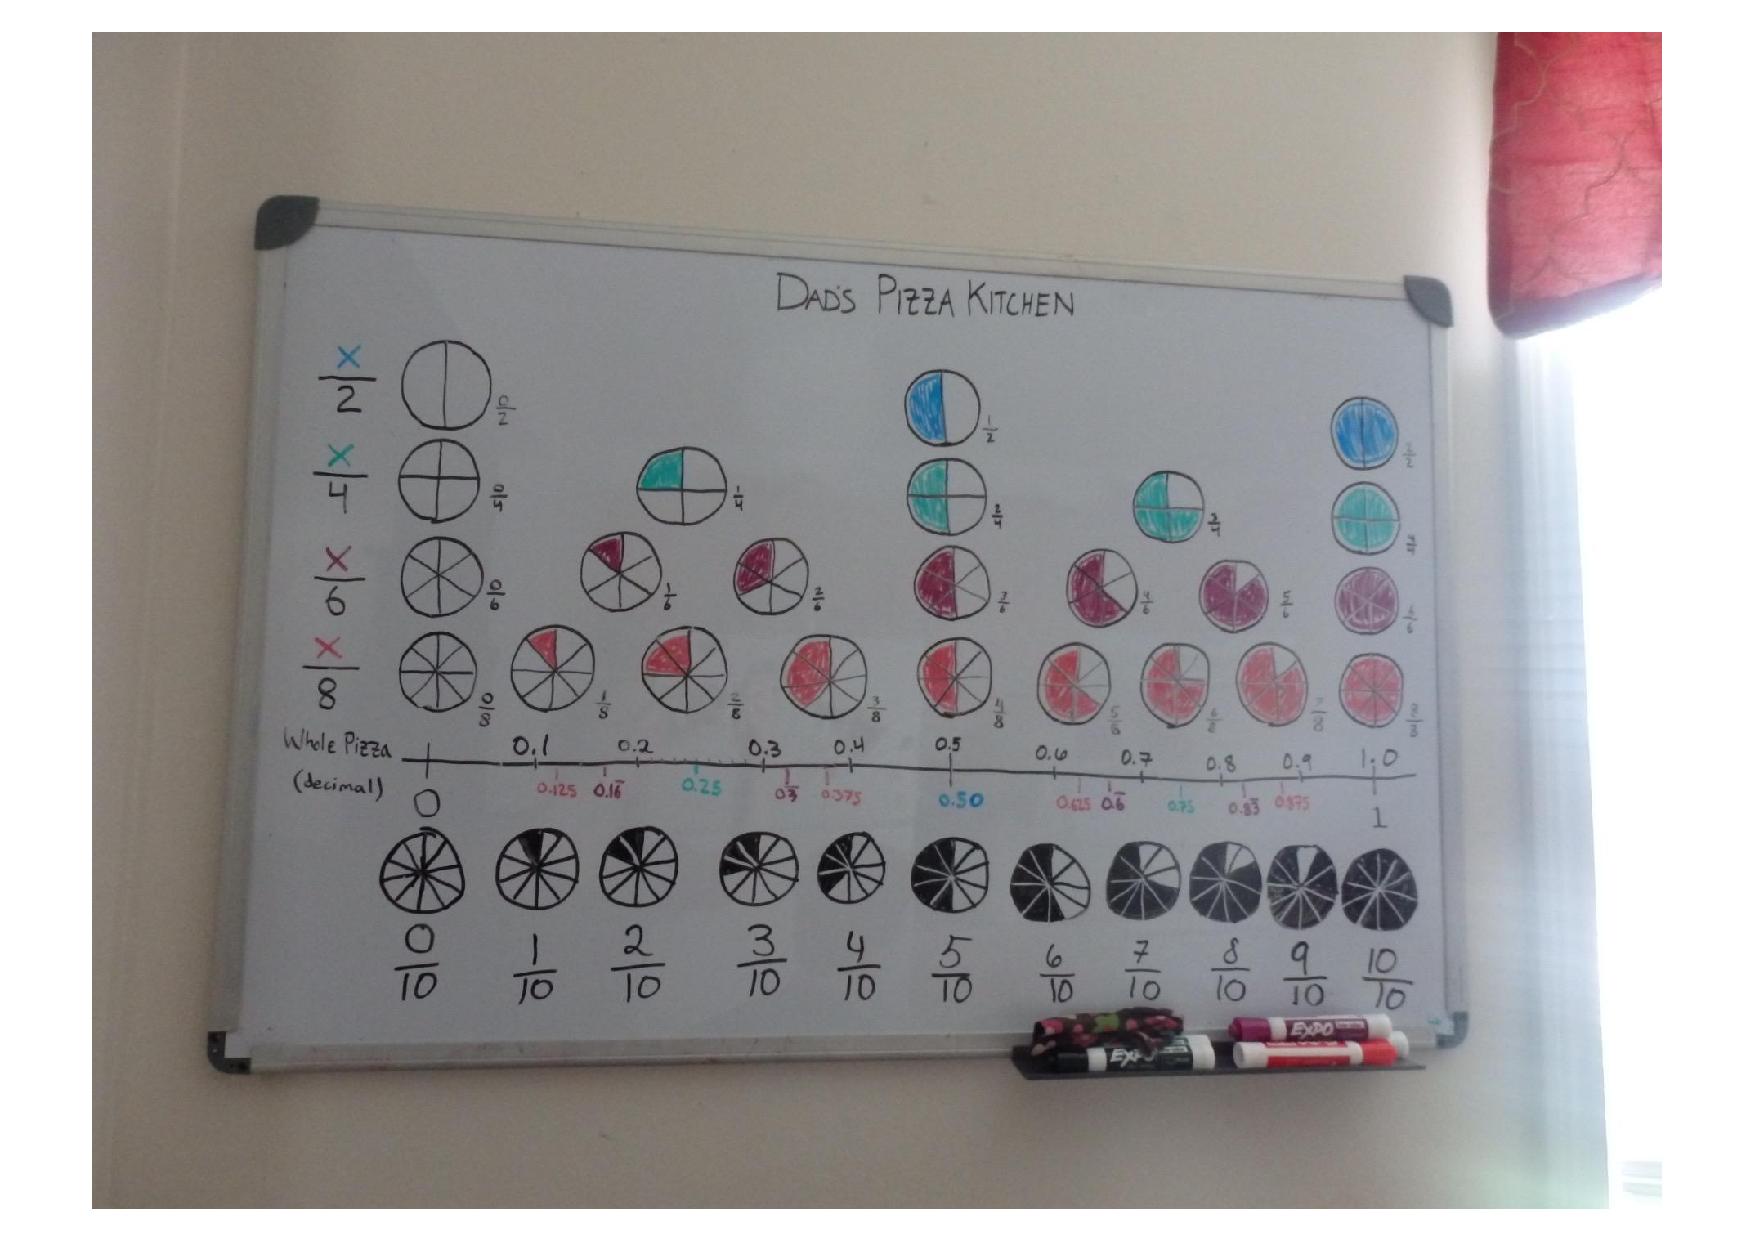 DAD'S PIZZA KITCHEN
x/2 0/2 1/2 2/2
x/4 0/4 1/4 2/4 3/4 4/4
x/6 0/6 1/6 2/6 3/6 4/6 5/6 6/6
x/8 0/8 1/8 2/8 3/8 4/8 5/8 6/8 7/8 8/8
Whole Pizza 0.1 0.2 0.3 0.4 0.5 0.6 0.7 0.8 0.9 1.0
(decimal) 0 0.125 0.16̅ 0.25 0.3̅ 0.375 0.50 0.625 0.6̅ 0.75 0.83̅ 0.875 1
0/10 1/10 2/10 3/10 4/10 5/10 6/10 7/10 8/10 9/10 10/10
EXPO
EXPO